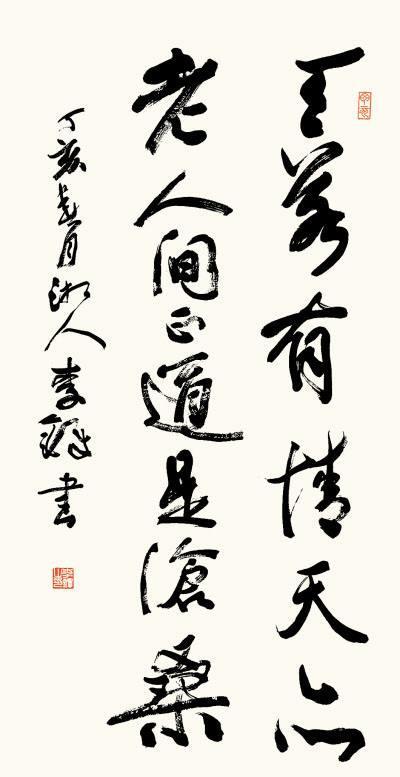 天若有情天亦
老人間正道是滄桑
丁亥春月湘人李鐸書